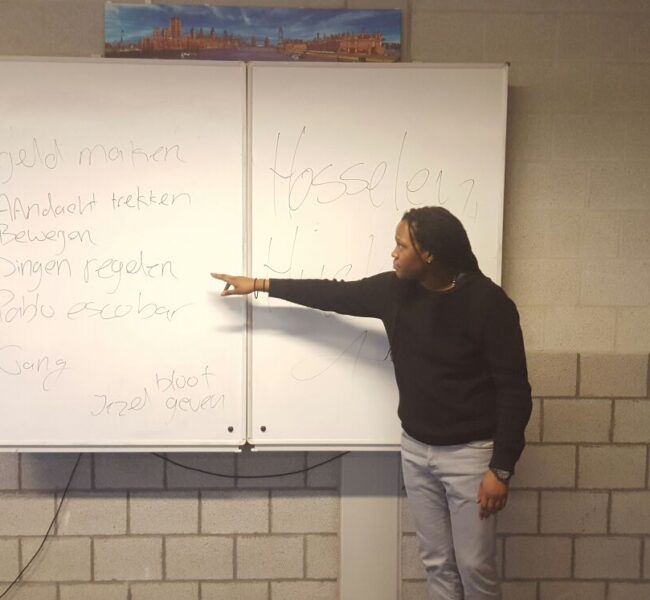 geld maken
AAndacht trekken
Bewegen
Dingen regelen
Pablo escobar
Gang
bloot
geven
Hosselen